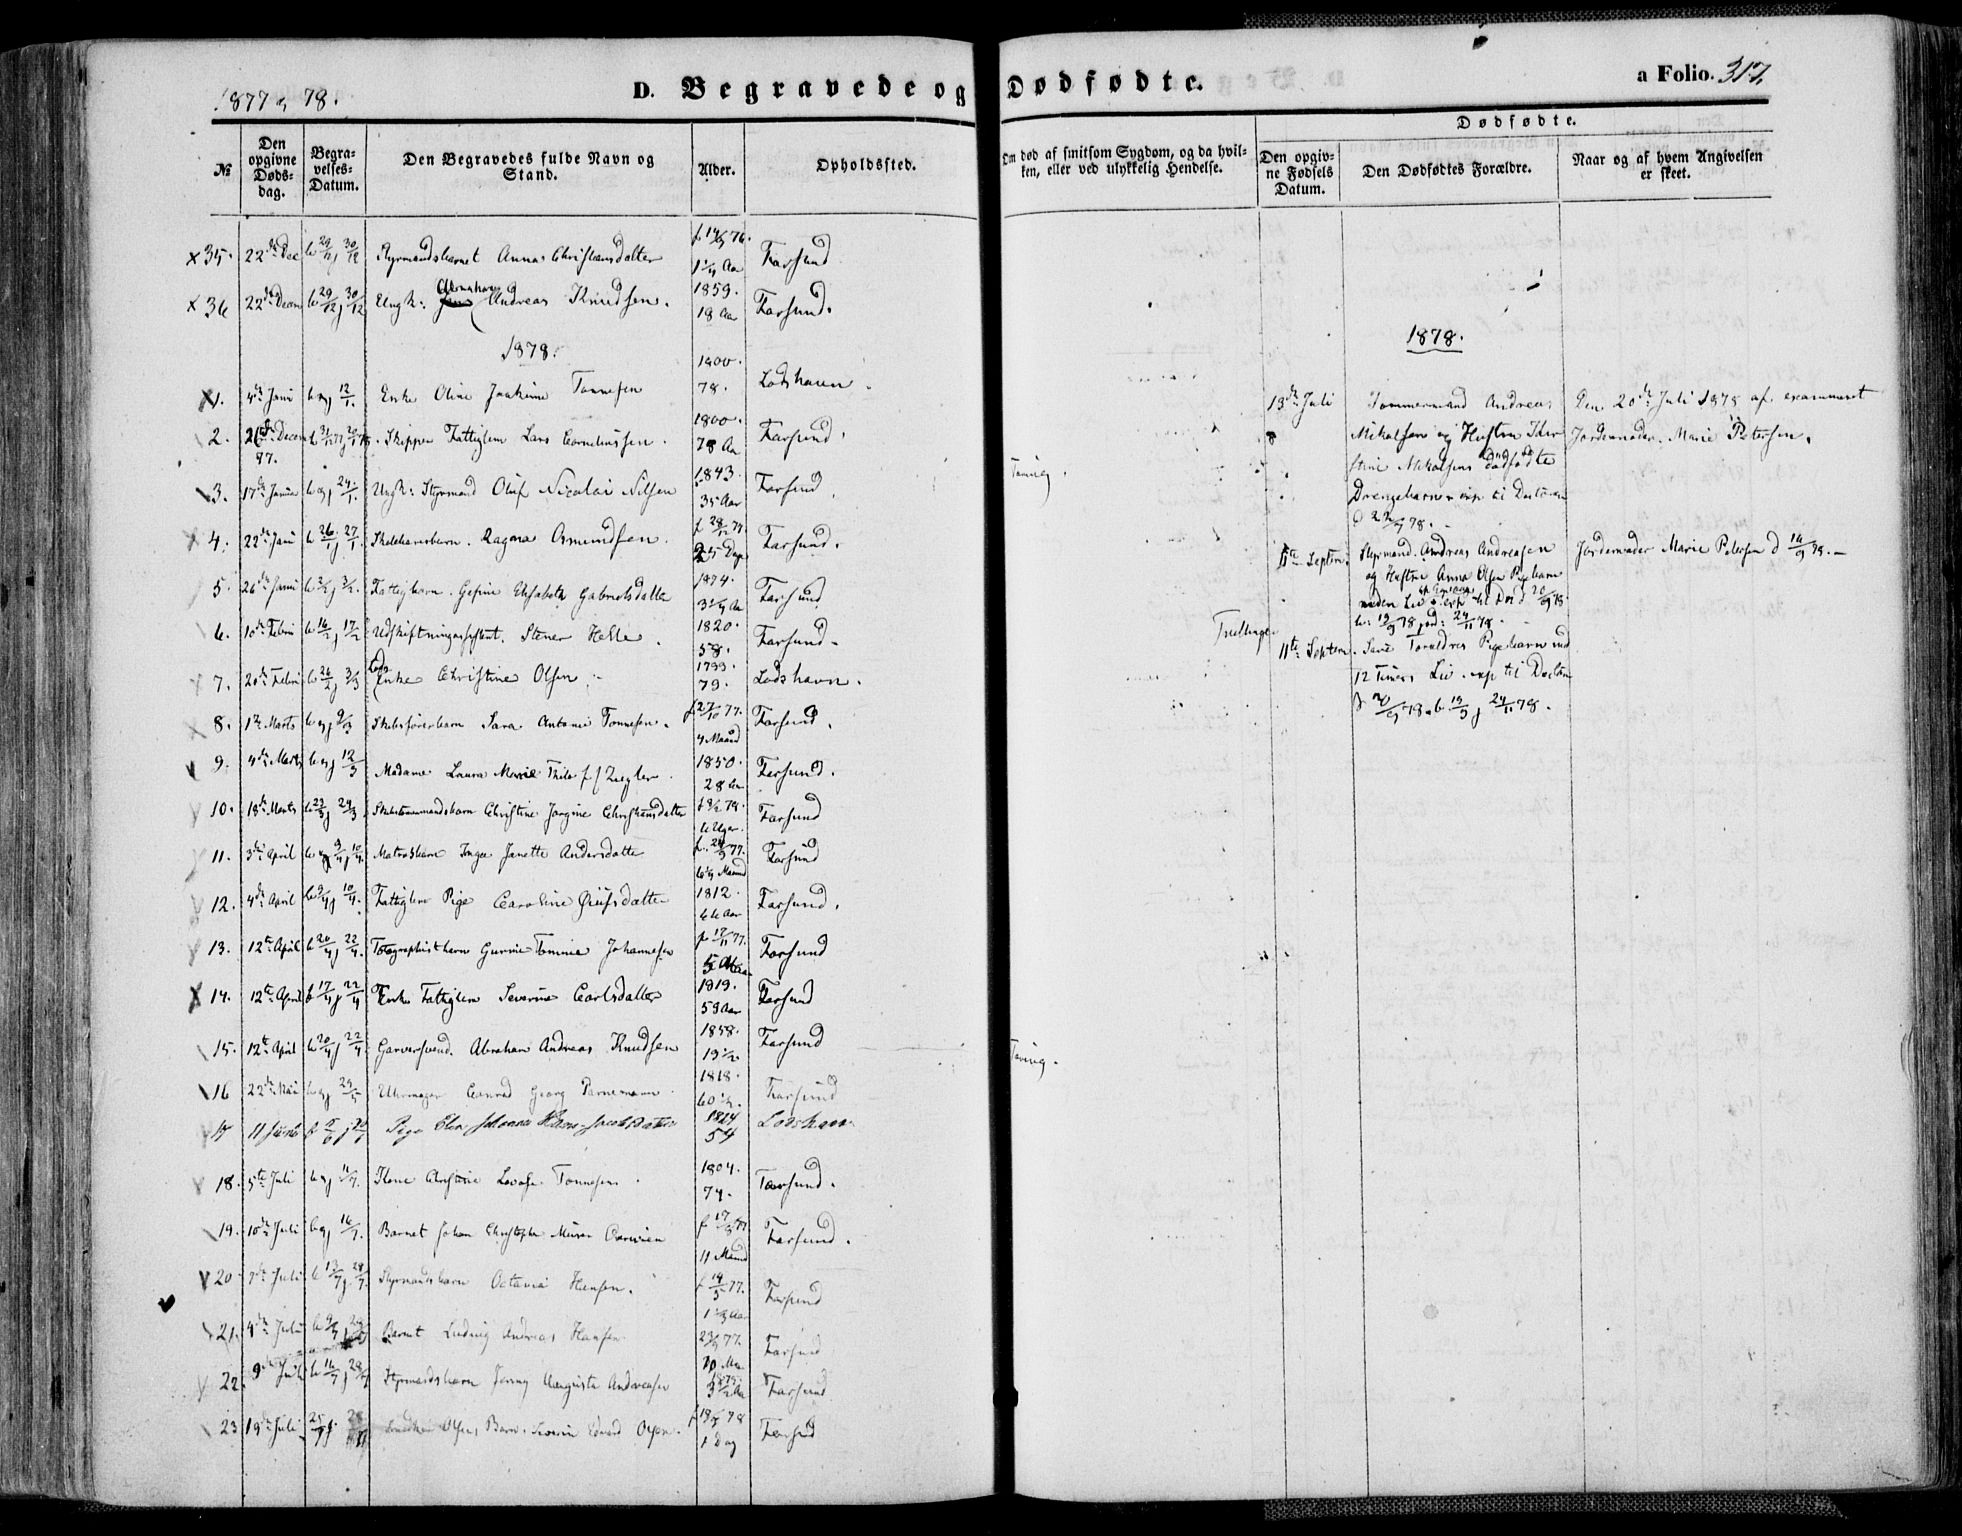 1877 og 78.
D. Begravede og Dødfødte.
a Folio. 317.
No
Den opgivne Døds-dag.
Begra-velses-Datum.
Den Begravedes fulde Navn og Stand.
Alder.
Opholdssted.
Om død af smitsom Sygdom, og da hvil-ken, eller ved ulykkelig Hendelse.
Dødfødte.
Den opgiv-ne Fødsels Datum.
Den Dødfødtes Forældre.
Naar og af hvem Angivelsen er skeet.
x 35. 22de Dec b 29/12 j 30/12 Styrmandsbarnet Anna Christiansdatter f 14/9 76. 1 1/4 Aar Farsund
x 36 22de Decem b 29/12 j 30/12 Ungk: Abraham Andreas Knudsen. 1859. 18 Aar Farsund.
1878.
1. 4de Janu b og j 12/1. Enke Oline Joakime Tønnesen 1800. 78. Lodshavn.
2. 26de Decem 77. Skipper Fattiglem Lars Corneliussen. 1800. 78 Aar Farsund.
3. 17de Janua b og j 24/1. Ungk: Styrmand Oluf Nicolai Nilsen 1843. 35 Aar Farsund.
4. 22de Janu b 26/1 j 27/1. Ragna Osmundsen. f 28/12 77. 25 Dage Farsund.
5. 26de Janu b 2/2 j 3/2. Fattigbarn. Gesine Elisabeth Gabrielsdatter 1874. 3 1/4 Aar Farsund
6. 10de Febru b 16/2 j 17/2 Stener Helle. 1820. 58. Farsund.
7. 20de Febru b 26/2 j 3/3 Lods Enke Christine Olsen. 1799. 79. Lodshavn.
8. 1ste Marts b og j 9/3 Skibsførerbarn Sara Antonie Tønnesen. f 27/10 77. 4 Maaned Farsund.
9. 4de Marts b og j 12/3 Madame Laura Marie Thilo f. Ziegler 1850. 28 Aar Farsund.
10. 18de Marts b 23/3 j 24/3 Skibstømmermandsbarn Christine Jørgine Christiansdatter f 8/2 78. 6 Uger. Farsund
11. 3die April b og j 9/4 10/4. Matrosbarn Inga Janette Andersdatter f. 77. Maaned Farsund
12. 4de April b 9/4 j 10/4. Fattiglem Pige Caroline Olufsdatter 1812. 66 Aar Farsund.
13. 12te April b 20/4 j 22/4. Fotographistbarn Gurine Tomine Johannesen f 17/11 77. 5 Maan Farsund
14. 12te April b 17/4 j 22/4 Enke Fattiglem Severine Carlsdatter 1819. 59 Aar Farsund
15. 12te April b 20/4 j 22/4 Garversvend. Abraham Andreas Knudsen 1858. 19 1/2 Farsund
16 22de Mai b og j 29/5 Uhrmager Conrad Georg 1818. 60 1/2. Farsund
17 11 Juni Pige Elen Johanne Jacobsdatter 1824 54 Lodshavn
18. 5te Juli b og j 11/7. Kone Christine Lovise Tønnesen. 1804. 74. Farsund.
19. 10de Juli b og j 16/7. Barnet Johan Christopher 11 Maaned Farsund.
20 7de Juli b 13/7 j 28/7. Styrmandsbarn Octavia Hansen. f 19/5 77. Farsund
21. 4de Juli Barnet Ludvig Andreas Hansen 77. 10 Ma Farsund
22. 9de Juli b 16/7 j 28/7 Styrmandsbarn Jenny Augusta Andreasen 3 1/2 Aar Farsund
23 19de Juli Olsens Barn. Severin Edvard Olsen. 78 1 Dag Farsund
Tæring.
Tæring.
1878.
13de Juli Tømmermand Andreas Den 20de Juli 1878 af examineret
Mikalsen og Hustru Jordemoder. Marie Petersen.
Mikalsens dødfødte
Drengebarn. exp til Doctoren
d 22/7 78.
11te Septem. Styrmand. Andreas Andreasen Jordemoder Marie Petersen d 16/9 78.
og Hustru Anna Olsen Pigebarn
uden Liv exp til Doc d 20/9 78
b: 19/9 78 jord: 24/11 78.
Tvillinger
11te Septem. Pigebarn med
12 Timers Liv. exp til Doctoren
d 20/9 78. b 19/9 j 24/11 78.